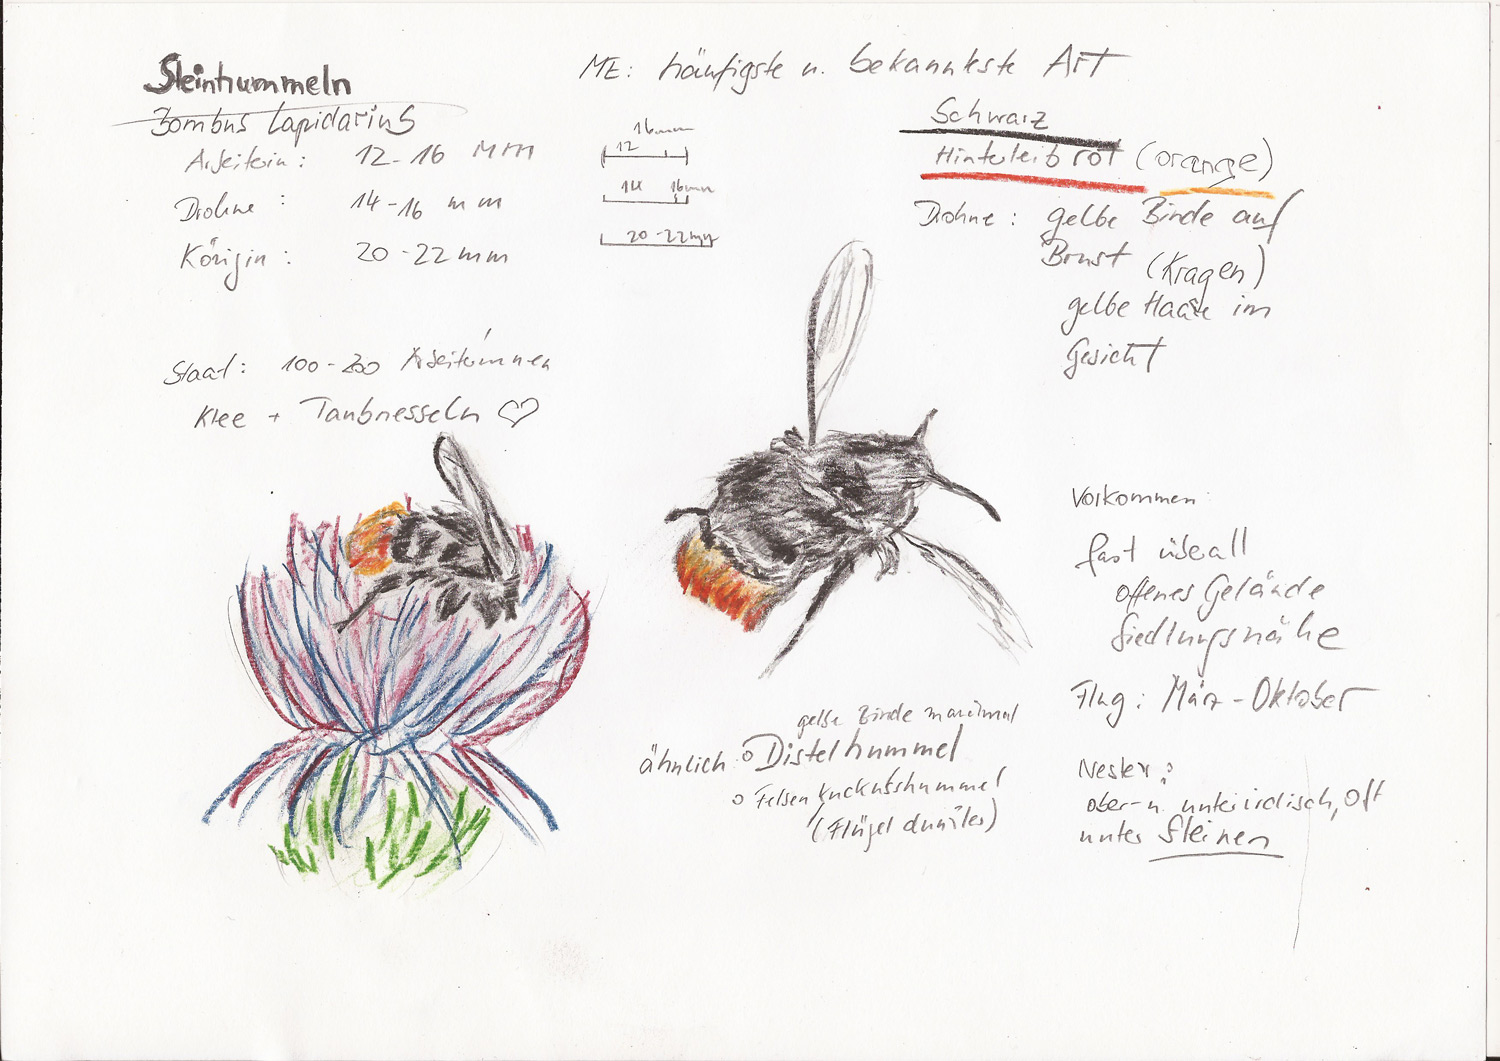 Steinhummeln
Bombus Lapidarius
Arbeiterin: 12-16 mm
Drohne: 14-16 mm
Königin: 20-22 mm
Staat: 100-200 Arbeiterinnen
Klee + Taubnesseln ♡
ME: häufigste u. bekannteste Art
16mm
12
14 16mm
20-22mm
Schwarz
Hinterleib rot (orange)
Drohne: gelbe Binde auf
Brust (Kragen)
gelbe Haare im
Gesicht
Vorkommen:
fast überall
offenes Gelände
Siedlungsnähe
Flug: März-Oktober
Nester:
ober- u. unterirdisch, oft
unter Steinen
gelbe Binde
ähnlich o Distelhummel
o Felsenkuckuckshummel
(Flügel dunkler)